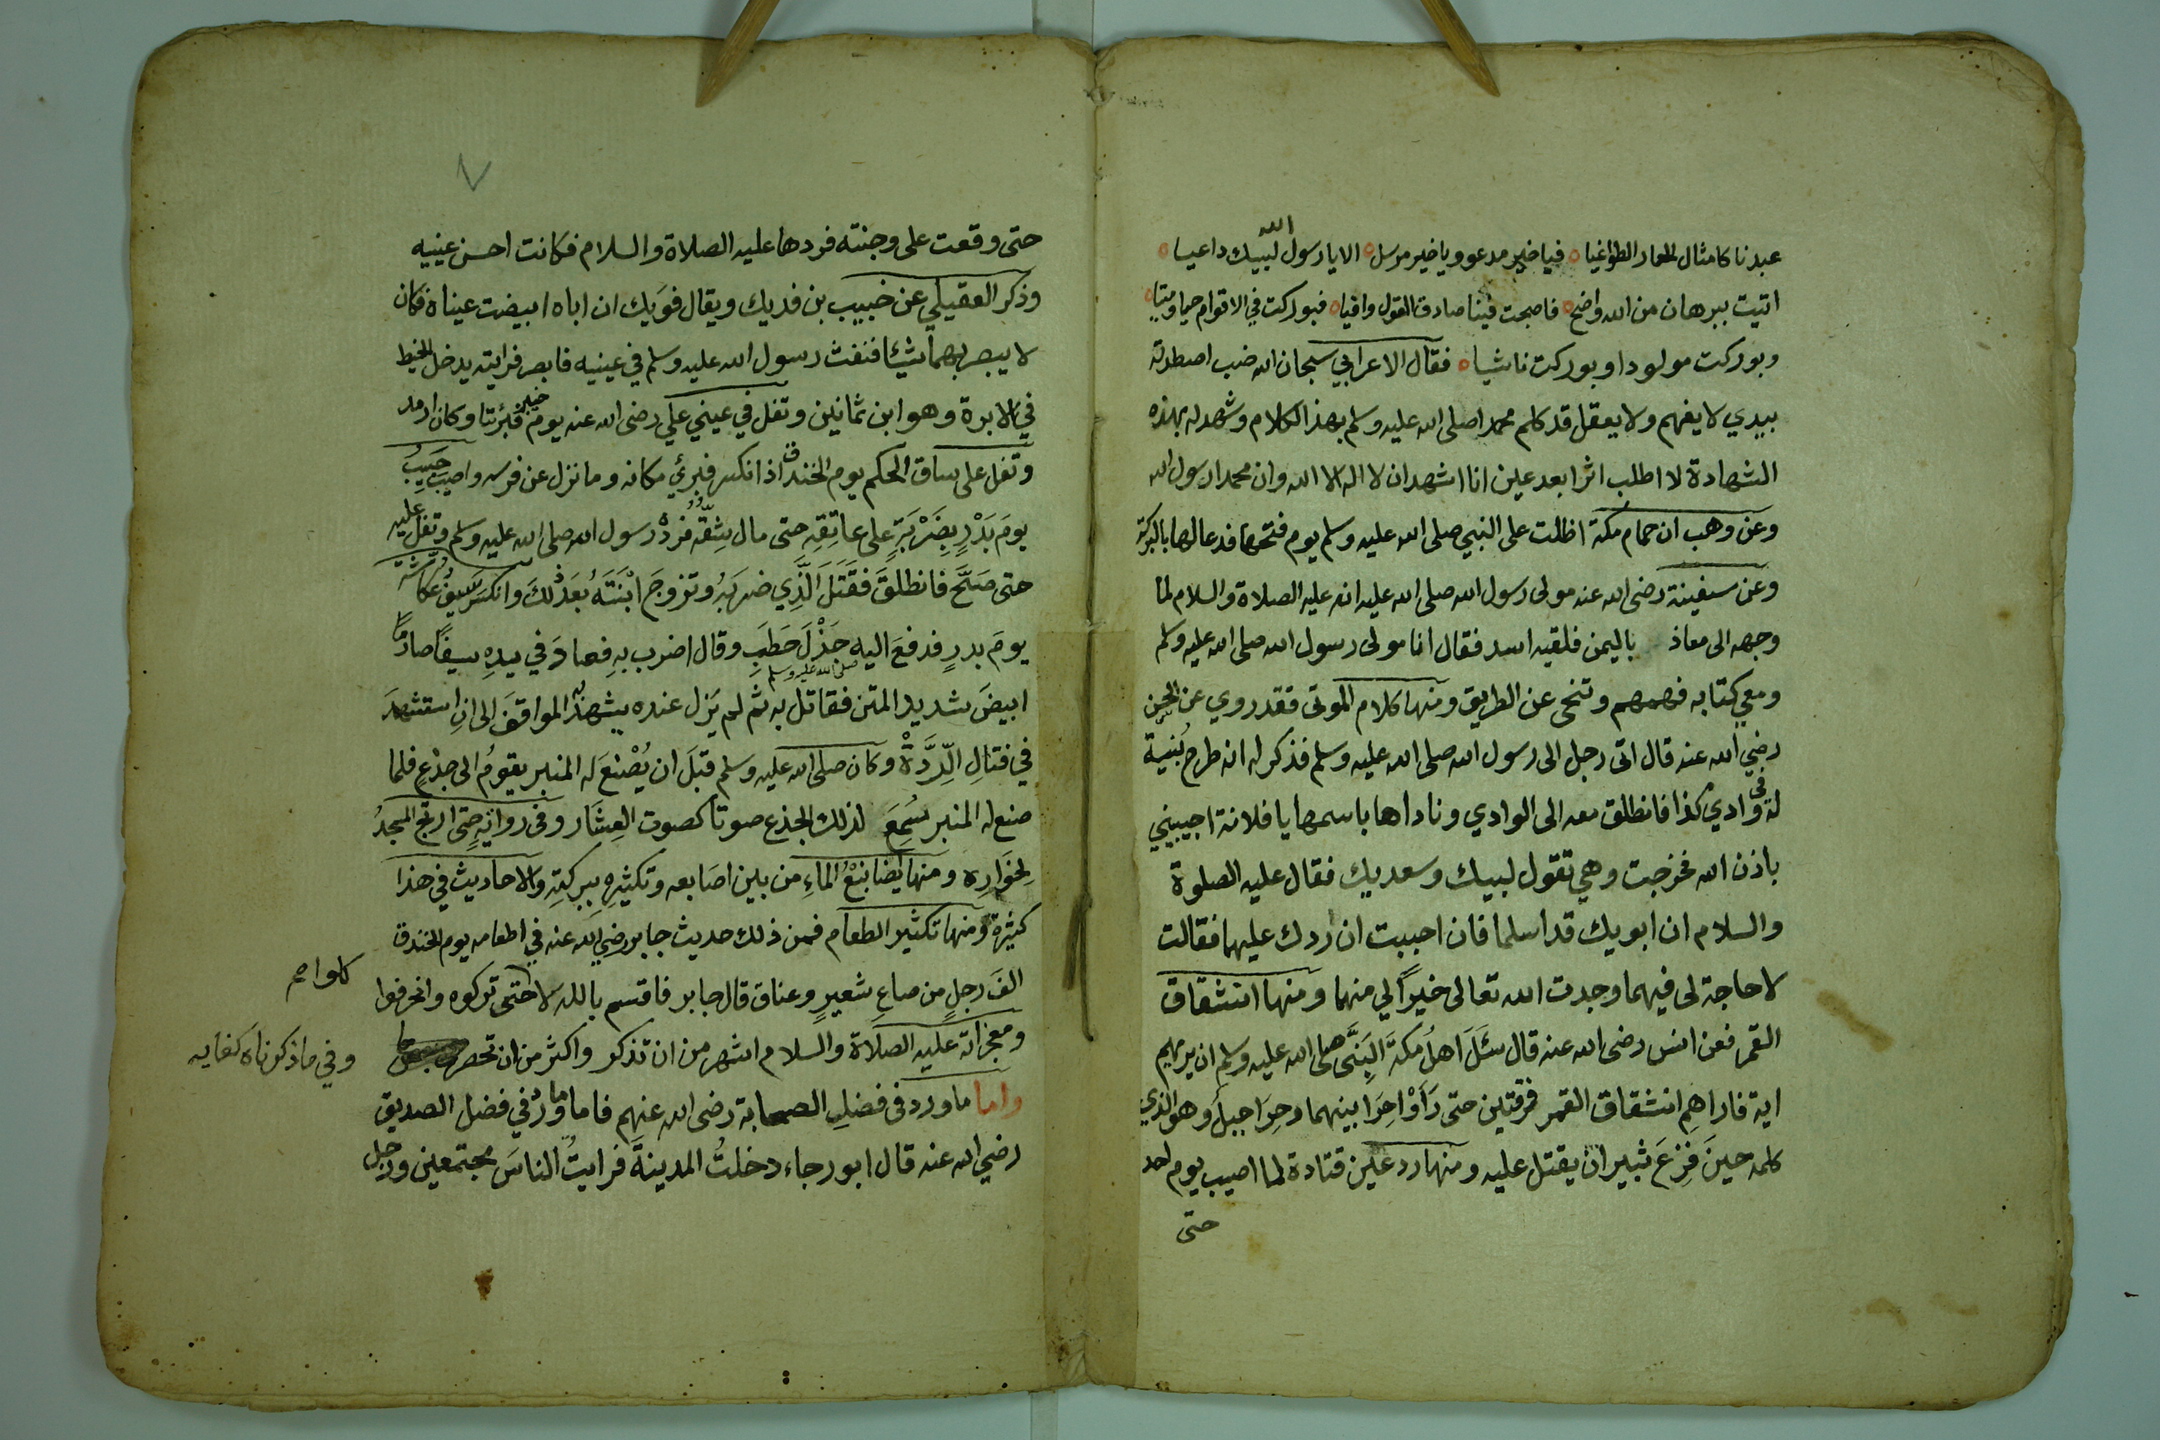 عبدنا كامثال الحمار الطواغيا ه فيا خير مدعو ويا خير مرسل ه الا يا رسول الله لبيك داعيا ه
اتيت ببرهان من الله واضح ه فاصبحت فينا صادق القول وافيا ه فبوركت في الاقوام حيا وميتا ه
وبوركت مولودا وبوركت ناشيا ه فقال الاعرابي سبحان الله ضب اصطدته
بيدي لا يفهم ولا يعقل قد كلم محمدا صلى الله عليه وسلم بهذا الكلام وشهد له بهذه
الشهادة لا اطلب اثرا بعد عين انا اشهد ان لا اله الا الله وان محمدا رسول الله
وعن وهب ان حمام مكة اظلت على النبي صلى الله عليه وسلم يوم فتحها فدعا لها بالبركة
وعن سفينة رضى الله عنه مولى رسول الله صلى الله عليه انه عليه الصلاة والسلام لما
وجهه الى معاذ باليمن فلقيه اسد فقال انا مولى رسول الله صلى الله عليه وسلم
ومعي كتابه فهمهم وتنحى عن الطريق ومنها كلام الموتى فقد روي عن الحسن
رضي الله عنه قال اتى رجل الى رسول الله صلى الله عليه وسلم فذكر له انه طرح بُنية
له في وادي كذا فانطلق معه الى الوادي وناداها باسمها يا فلانة اجيبيني
باذن الله فخرجت وهي تقول لبيك وسعديك فقال عليه الصلوة
والسلام ان ابويك قد اسلما فان احببت ان اردك عليهما فقالت
لا حاجة لى فيهما وجدت الله تعالى خيراً لي منهما ومنها انشقاق
القمر فعن انس رضى الله عنه قال سَئَلَ اهلُ مكةَ النبيَّ صلى الله عليه وسلم ان يريهم
اية فاراهم انشقاق القمر فرقتين حتى رَأَوْا حِرَا بينهما وحِرَا جبل وهو الذي
كلمه حينَ فزِعَ ثبير ان يقتل عليه ومنها رد عين قتادة لما اصيب يوم احد
حتى
حتى وقعت على وجنته فردها عليه الصلاة والسلام فكانت احسن عينيه
وذكر العقيلي عن خبيب بن فديك ويقال فوَيك ان اباه ابيضت عيناه فكان
لا يبصر بهما شيئا فنفث رسول الله عليه وسلم في عينيه فابصر فرايته يدخل الخيط
في الابرة وهو ابن ثمانين وتفل في عيني علي رضى الله عنه يوم خيبر فبُرئتا وكان ارمد
وتفل على ساق الحكم يوم الخندق اذ انكسر فبرئَ مكانه وما نزل عن فرسه واصيب خبيبُ
يومَ بَدْرٍ بِضَرْبَةٍ على عاتِقِهِ حتى مال شِقّه فردّه رسول الله صلى الله عليه وسلم وتفل عليه
حتى صَحَّ فانطلقَ فقَتَلَ الَّذِي ضربَهُ وتزوجَ ابْنَتَهُ بُعَدْ ذلكَ وانكسَرَ سيفُ عكاشَة
يومَ بدرٍ فدفعَ اليه صلى الله عليه وسلم جَذْلَ حَطَبٍ وقال اضرب بهِ فعادَ في يدِهِ سيفًا صارمًا
ابيضَ شديد المتن فقاتل به ثم لم يَزل عنده يشهدُ به المواقفَ الى ان استشهدَ
في قتالِ الرِّدَّةْ وكان صلى الله عليه وسلم قبَلَ ان يُصْنعَ له المنبر يقومُ الى جذعٍ فلما
صنع له المنبر سُمِعَ لذلك الجذع صوتا كصوت العِشَار وفي روايةٍ حتى ارتج المسجدُ
لِخوَارِه ومنها ايضا نبْعُ الماءِ من بين اصَابعه وتكثيره ببركتِهِ والاحاديث في هذا
كثيرة ومنها تكثير الطعام فمن ذلك حديث جابر رضي الله عنه في اطعامه يوم الخندق
الفَ رجلٍ من صاعِ شعيرٍ وعناق قال جابر فاقسم بالله لاكلوا حتى تركوه وانحرفوا
ومعجزاته عليه الصلاة والسلام اشهر من ان تذكر واكثر من ان تحصر
واما ما ورد في فضل الصحابة رضى الله عنهم فاما ما ورد في فضل الصديق
رضي الله عنه قال ابو رجاء دخلتُ المدينةَ فرايتُ الناسَ مجتمعين ورجل
كلوا صح
وفي ما ذكرناه كفايه